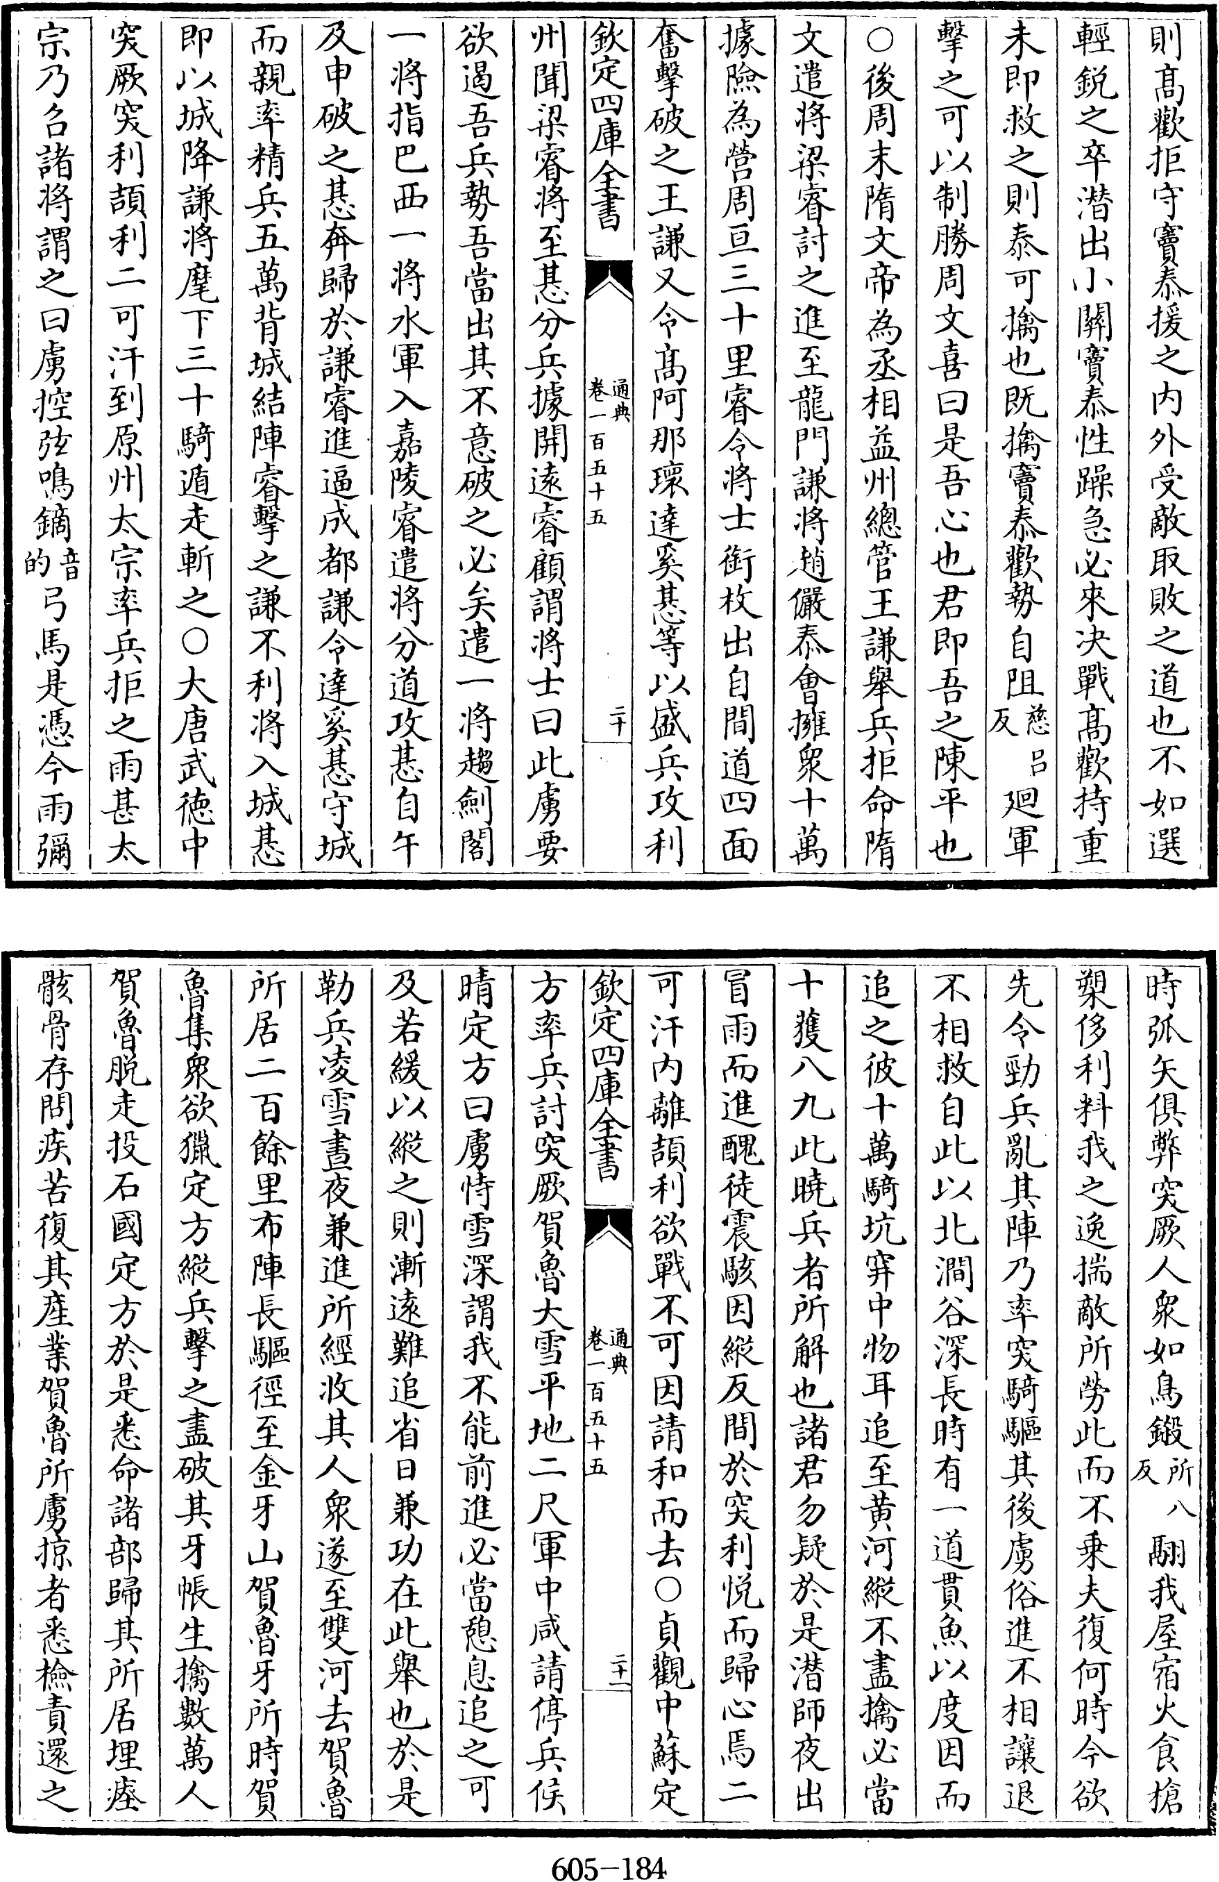 則髙歡拒守竇泰援之内外受敵取敗之道也不如選
輕鋭之卒潜出小關竇泰性躁急必來决戰髙歡持重
未即救之則泰可擒也既擒竇泰歡勢自阻慈吕反廻軍
擊之可以制勝周文喜曰是吾心也君即吾之陳平也
○後周末隋文帝為丞相益州總管王謙舉兵拒命隋
文遣將梁睿討之進至龍門謙將趙儼泰會擁衆十萬
據險為營周亘三十里睿令將士銜枚出自間道四面
奮擊破之王謙又令髙阿那瓌達奚惎等以盛兵攻利
欽定四庫全書
通典
卷一百五十五
二十
州聞梁睿將至惎分兵據開遠睿顧謂將士曰此虜要
欲遏吾兵勢吾當出其不意破之必矣遣一將趨劍閣
一將指巴西一將水軍入嘉陵睿遣將分道攻惎自午
及申破之惎奔歸於謙睿進逼成都謙令達奚惎守城
而親率精兵五萬背城結陣睿擊之謙不利將入城惎
即以城降謙將麾下三十騎遁走斬之○大唐武徳中
突厥突利頡利二可汗到原州太宗率兵拒之雨甚太
宗乃召諸將謂之曰虜控弦鳴鏑音的弓馬是憑今雨彌
時弧矢俱弊突厥人衆如鳥鎩所八反翮我屋宿火食槍
槊侈利料我之逸揣敵所勞此而不乗夫復何時今欲
先令勁兵亂其陣乃率突騎驅其後虜俗進不相讓退
不相救自此以北澗谷深長時有一道貫魚以度因而
追之彼十萬騎坑穽中物耳追至黄河縱不盡擒必當
十獲八九此曉兵者所解也諸君勿疑於是潜師夜出
冒雨而進醜徒震駭因縱反間於突利悦而歸心焉二
可汗内離頡利欲戰不可因請和而去○貞觀中蘇定
欽定四庫全書
通典
卷一百五十五
二十一
方率兵討突厥賀魯大雪平地二尺軍中咸請停兵候
晴定方曰虜恃雪深謂我不能前進必當憩息追之可
及若緩以縱之則漸遠難追省日兼功在此舉也於是
勒兵凌雪晝夜兼進所經收其人衆遂至雙河去賀魯
所居二百餘里布陣長驅徑至金牙山賀魯牙所時賀
魯集衆欲獵定方縱兵擊之盡破其牙帳生擒數萬人
賀魯脱走投石國定方於是悉命諸部歸其所居埋瘞
骸骨存問疾苦復其産業賀魯所虜掠者悉檢責還之
605-184